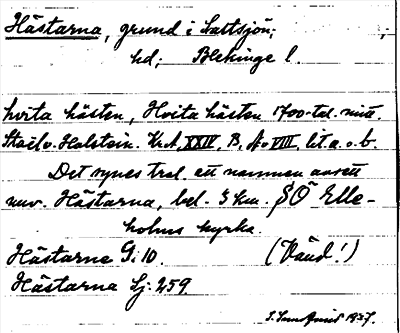 Hästarna, grund i Saltsjön;
hd; Blekinge l.
hvita hästen, Hvita hästen 1700-tal. mitt.
Staël v. Holstein. KrA, XXIV, B, A. VIII, lit. a. o. b.
Det synes tal. ett namnen avsett
nuv. Hästarna, bel. 3 km. SÖ Elle-
holms kyrka.
Hästarna G: 10. (Vänd!)
Hästarna Sj: 259.
1937.